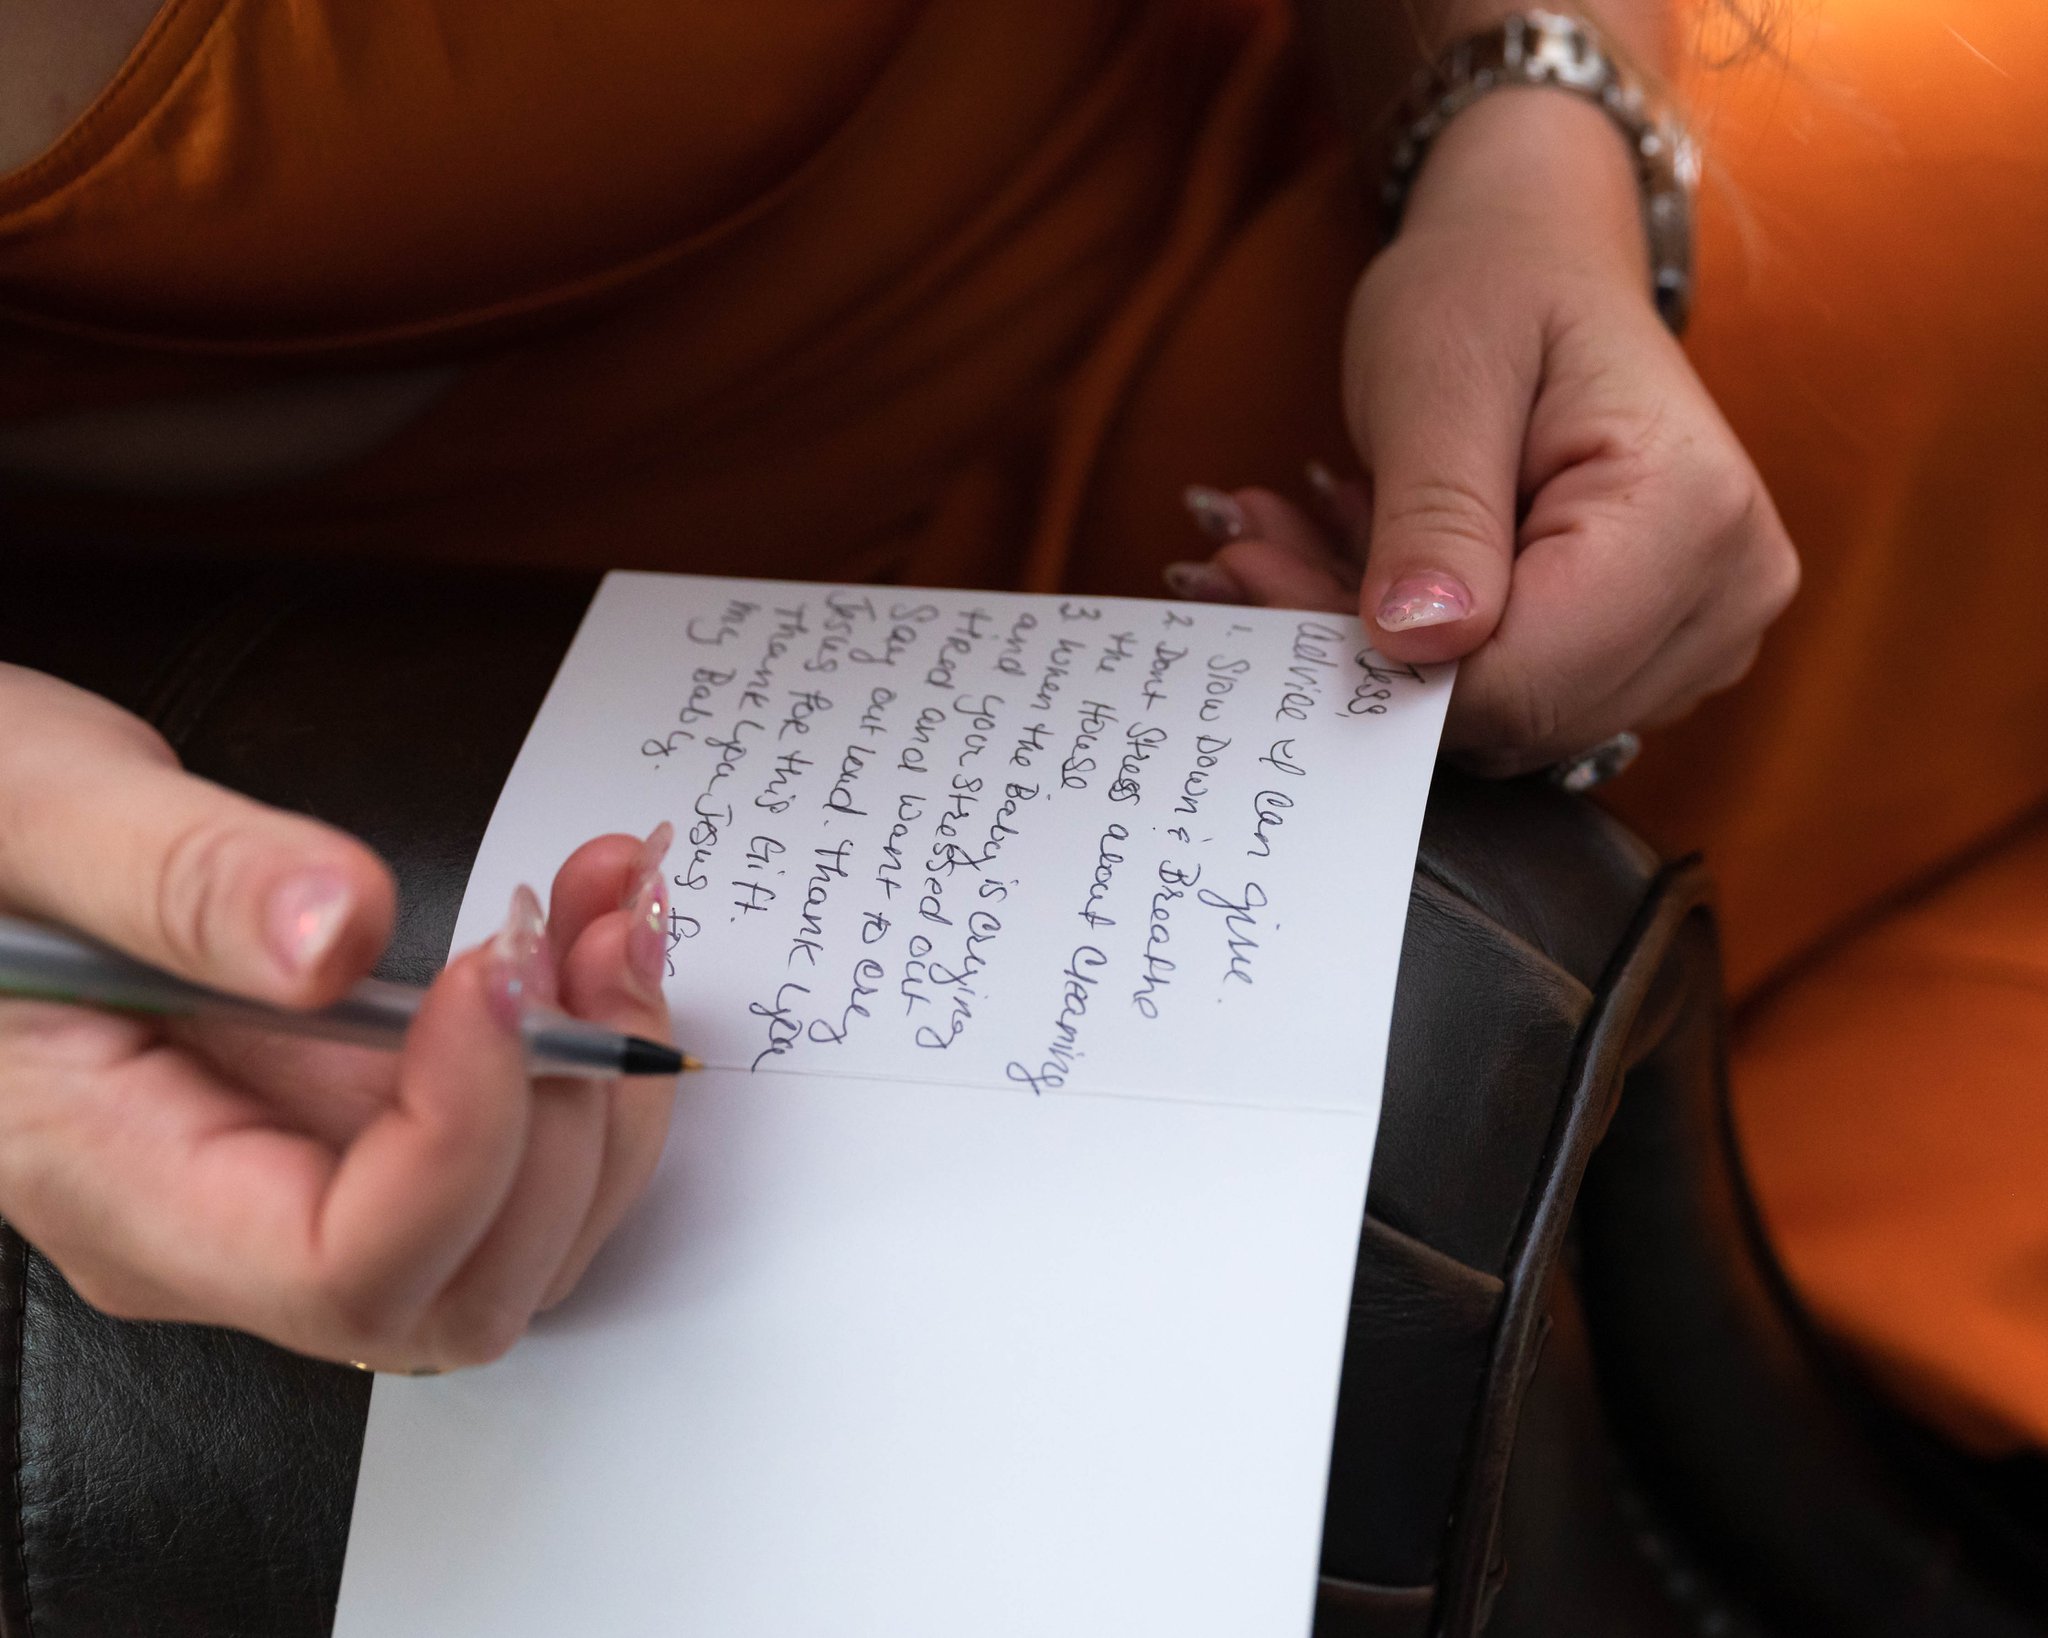 Jess,
advice I can give.
1. Slow Down & Breathe
2 Dont Stress about Cleaning
the House
3 When the Baby is crying
and your stressed out &
tired and want to cry
Say out loud. Thank you
Jesus for this Gift.
Thank you Jesus for
my Baby.